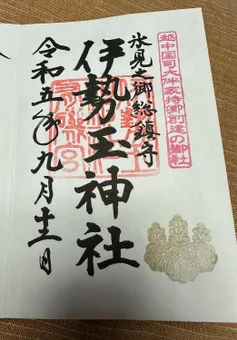 越中国司大伴家持卿創建の御社
氷見之郷総鎮守
伊勢玉神社
令和五年九月十三日